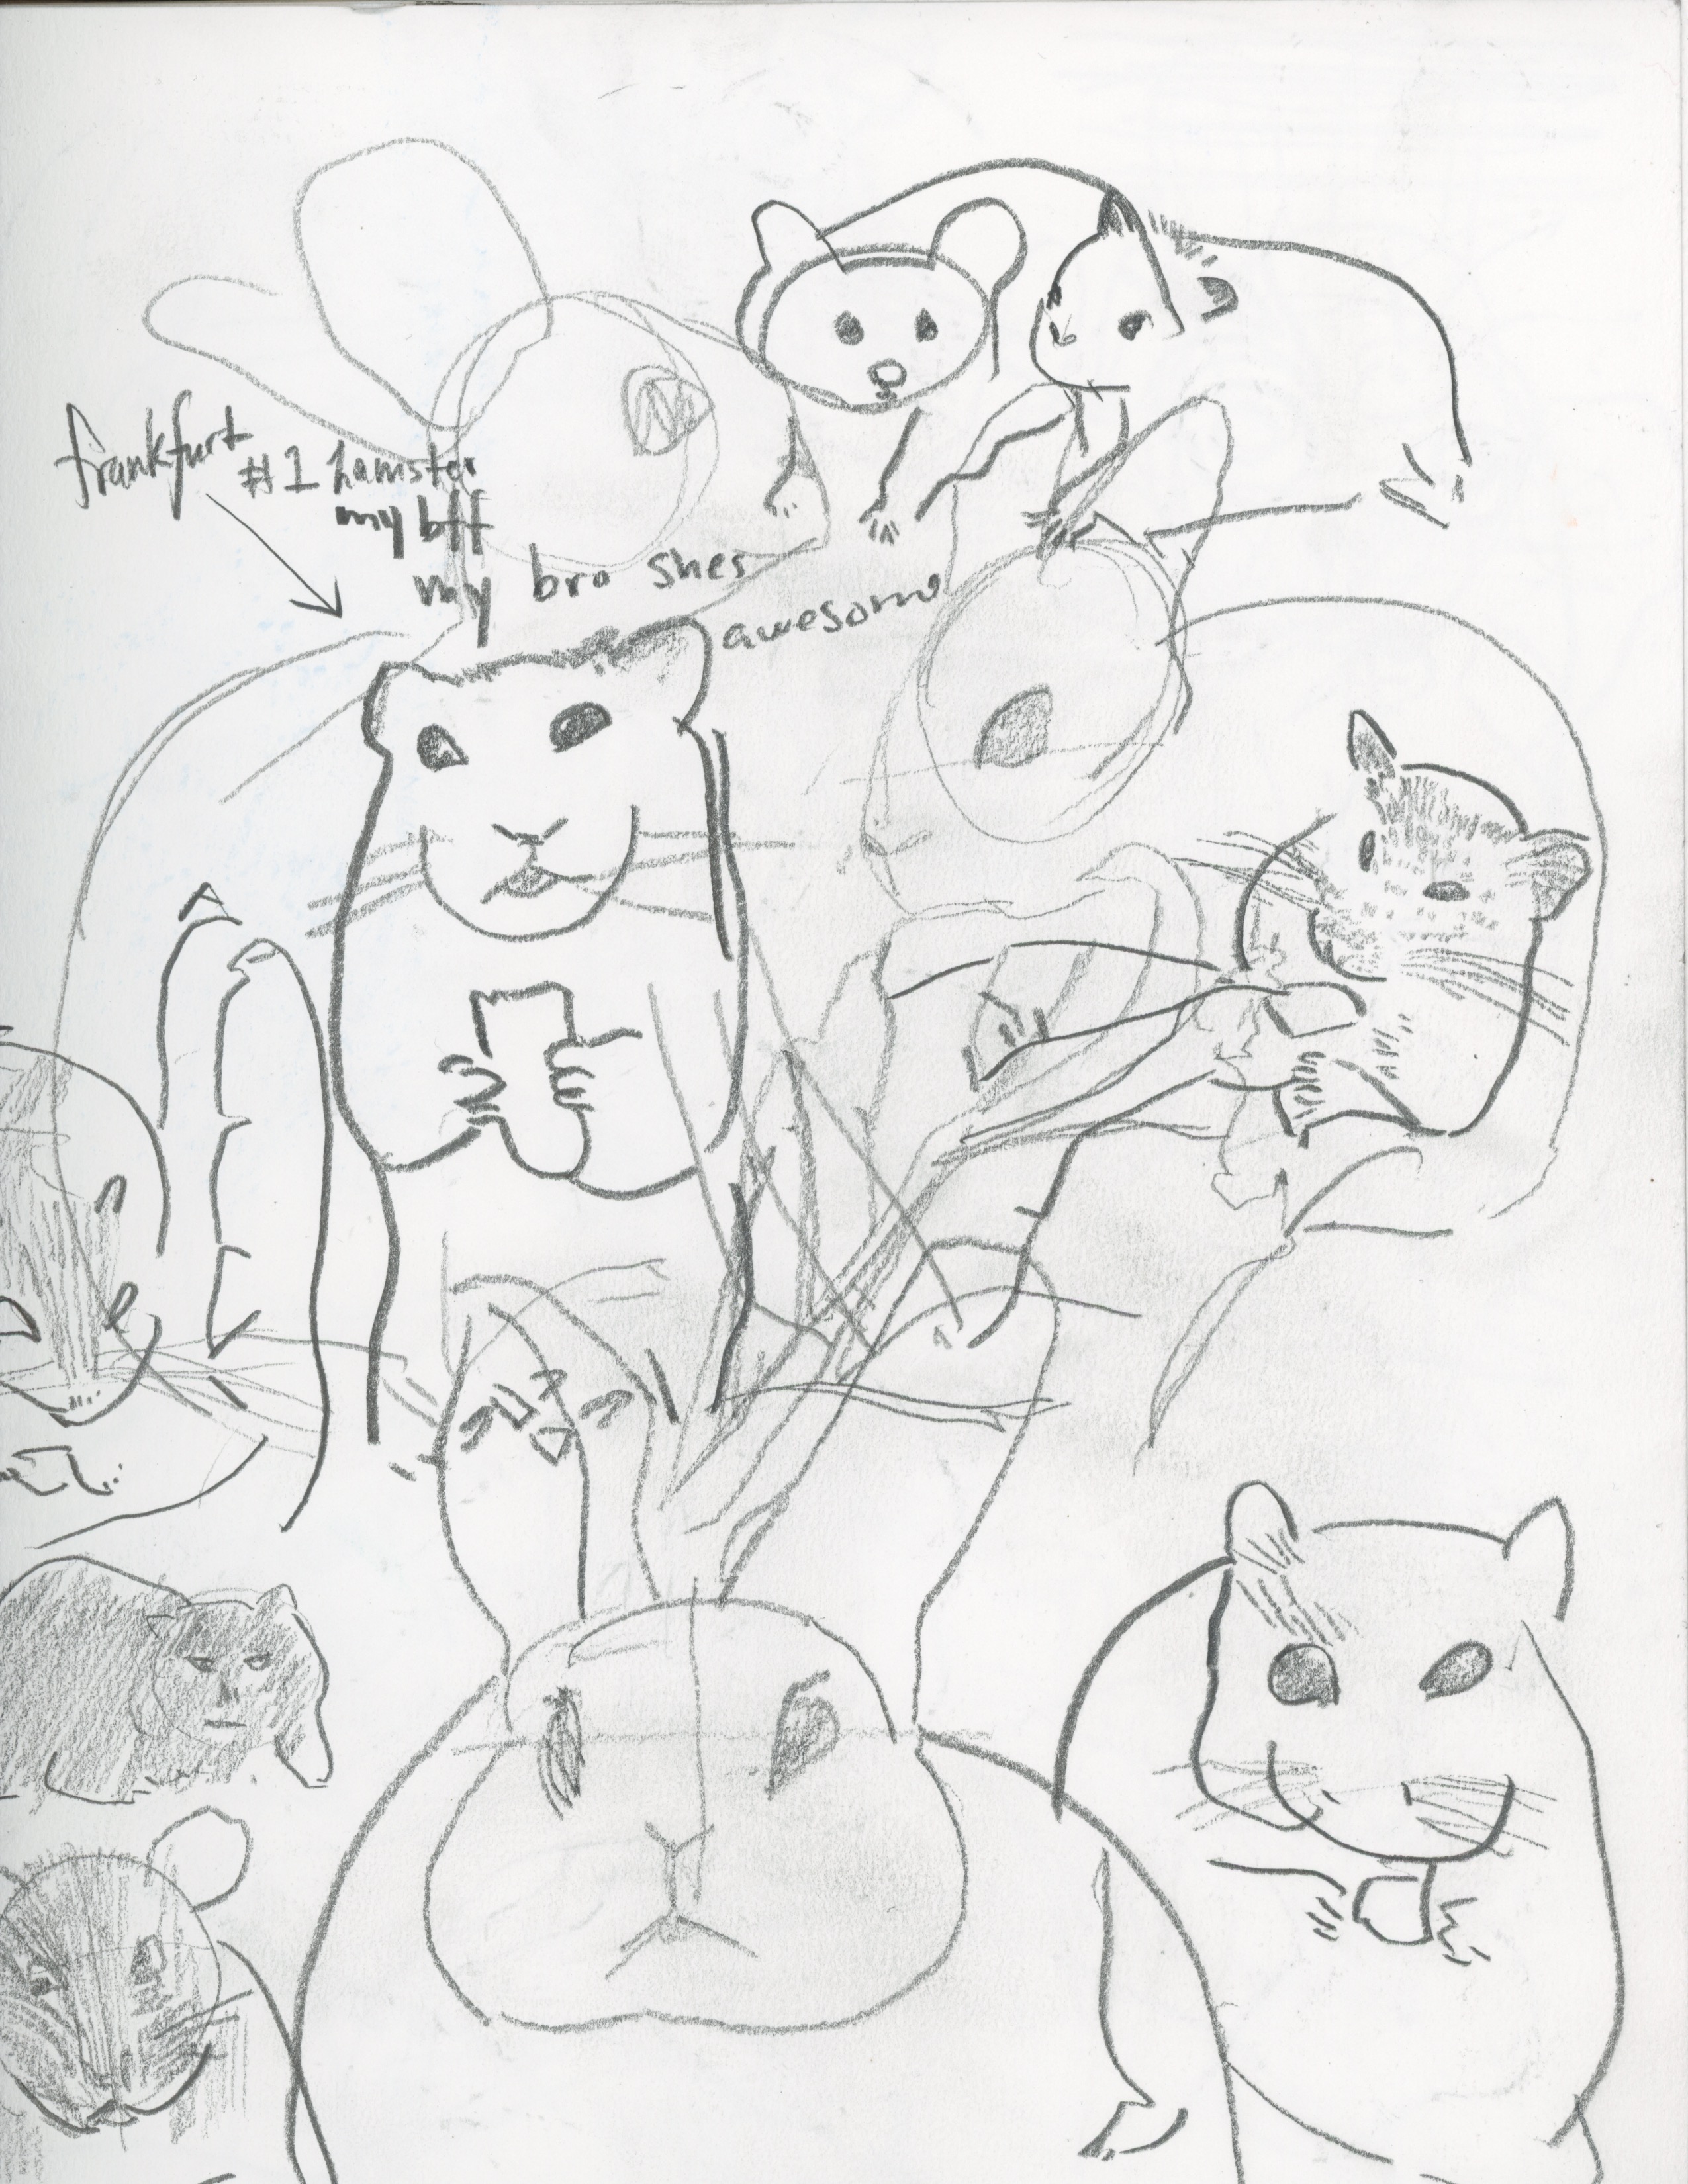 frankfurt
#1 hamster
my bff
my bro shes
awesome